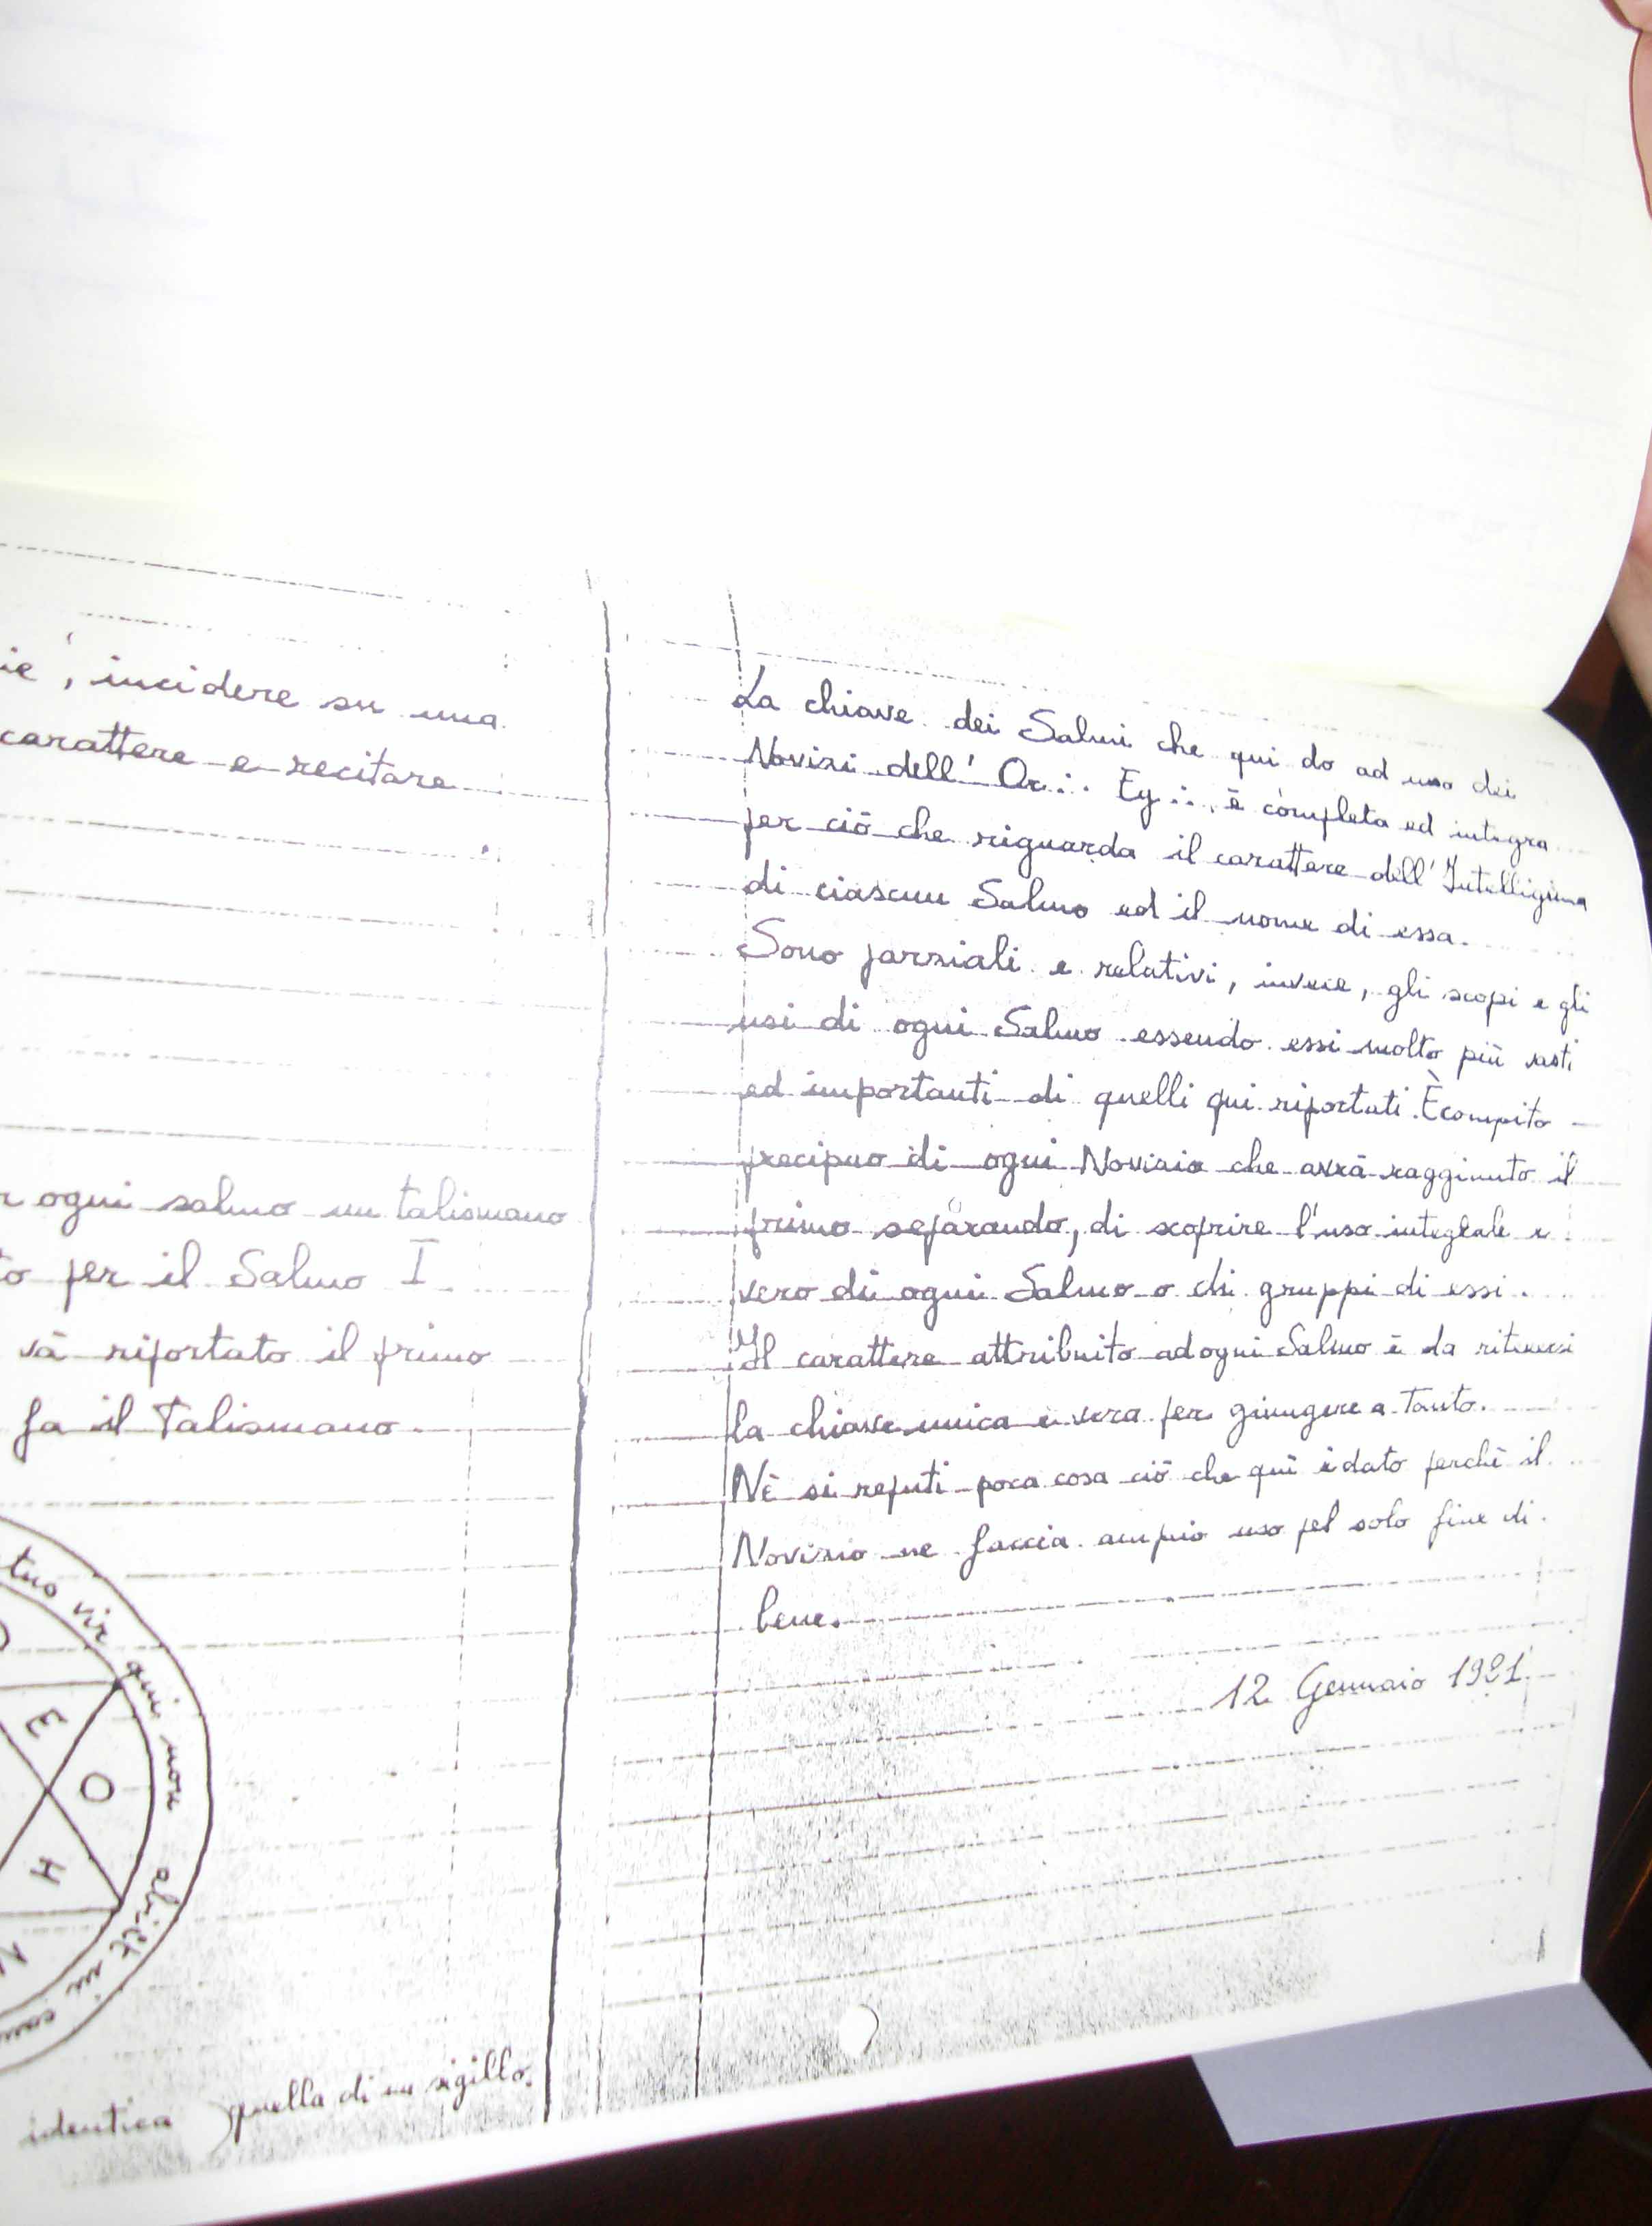 ie', incidere su una
carattere e recitare
ogni salmo un talismano
to per il Salmo I
và riportato il primo
fa il Talismano
tus vir qui non abiit in
E
O
H
identica quella di un sigillo.
La chiave dei Salmi che qui do ad uso dei
Novizi dell' Or∴ Eg∴ è completa ed integra
per ciò che riguarda il carattere dell' Intelligenza
di ciascun Salmo ed il nome di essa.
Sono parziali e relativi, invece, gli scopi e gli
usi di ogni Salmo essendo essi molto più vasti
ed importanti di quelli qui riportati. È compito
precipuo di ogni Novizio che avrà raggiunto il
primo separando, di scoprire l'uso integrale e
vero di ogni Salmo o di gruppi di essi.
Il carattere attribuito ad ogni Salmo è da ritenersi
la chiave unica e vera per giungere a tanto.
Nè si reputi poca cosa ciò che quì è dato perchè il
Novizio ne faccia ampio uso pel solo fine di
bene.
12 Gennaio 1921